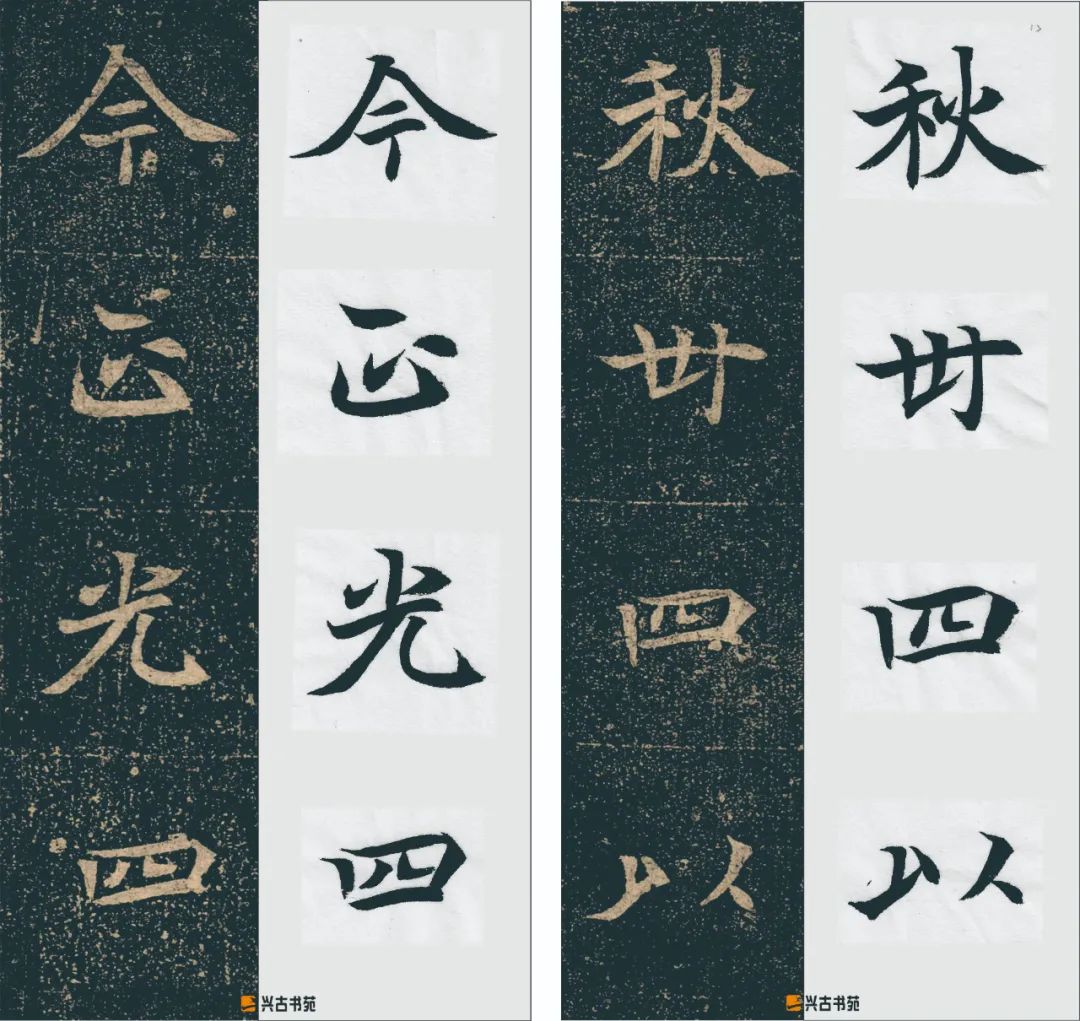 秋丗四以
秋丗四以
今正光四
今正光四
兴古书苑
兴古书苑